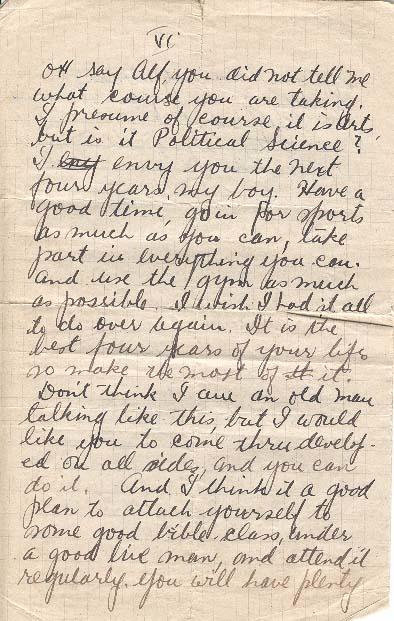 VI
Oh say Alf, you did not tell me
what course you are taking.
I presume of course it is Arts,
but is it Political Science?
I envy you the next
four years, my boy. Have a
good time, go in for sports
as much as you can, take
part in everything you can.
and use the gym as much
as possible. I wish I had it all
to do over again. It is the
best four years of your life
so make the most of it.
Don't think I am an old man
talking like this, but I would
like you to come thru develop-
ed on all sides, and you can
do it. And I think it a good
plan to attach yourself to
some good bible class, under
a good live man, and attend it
regularly. You will have plenty